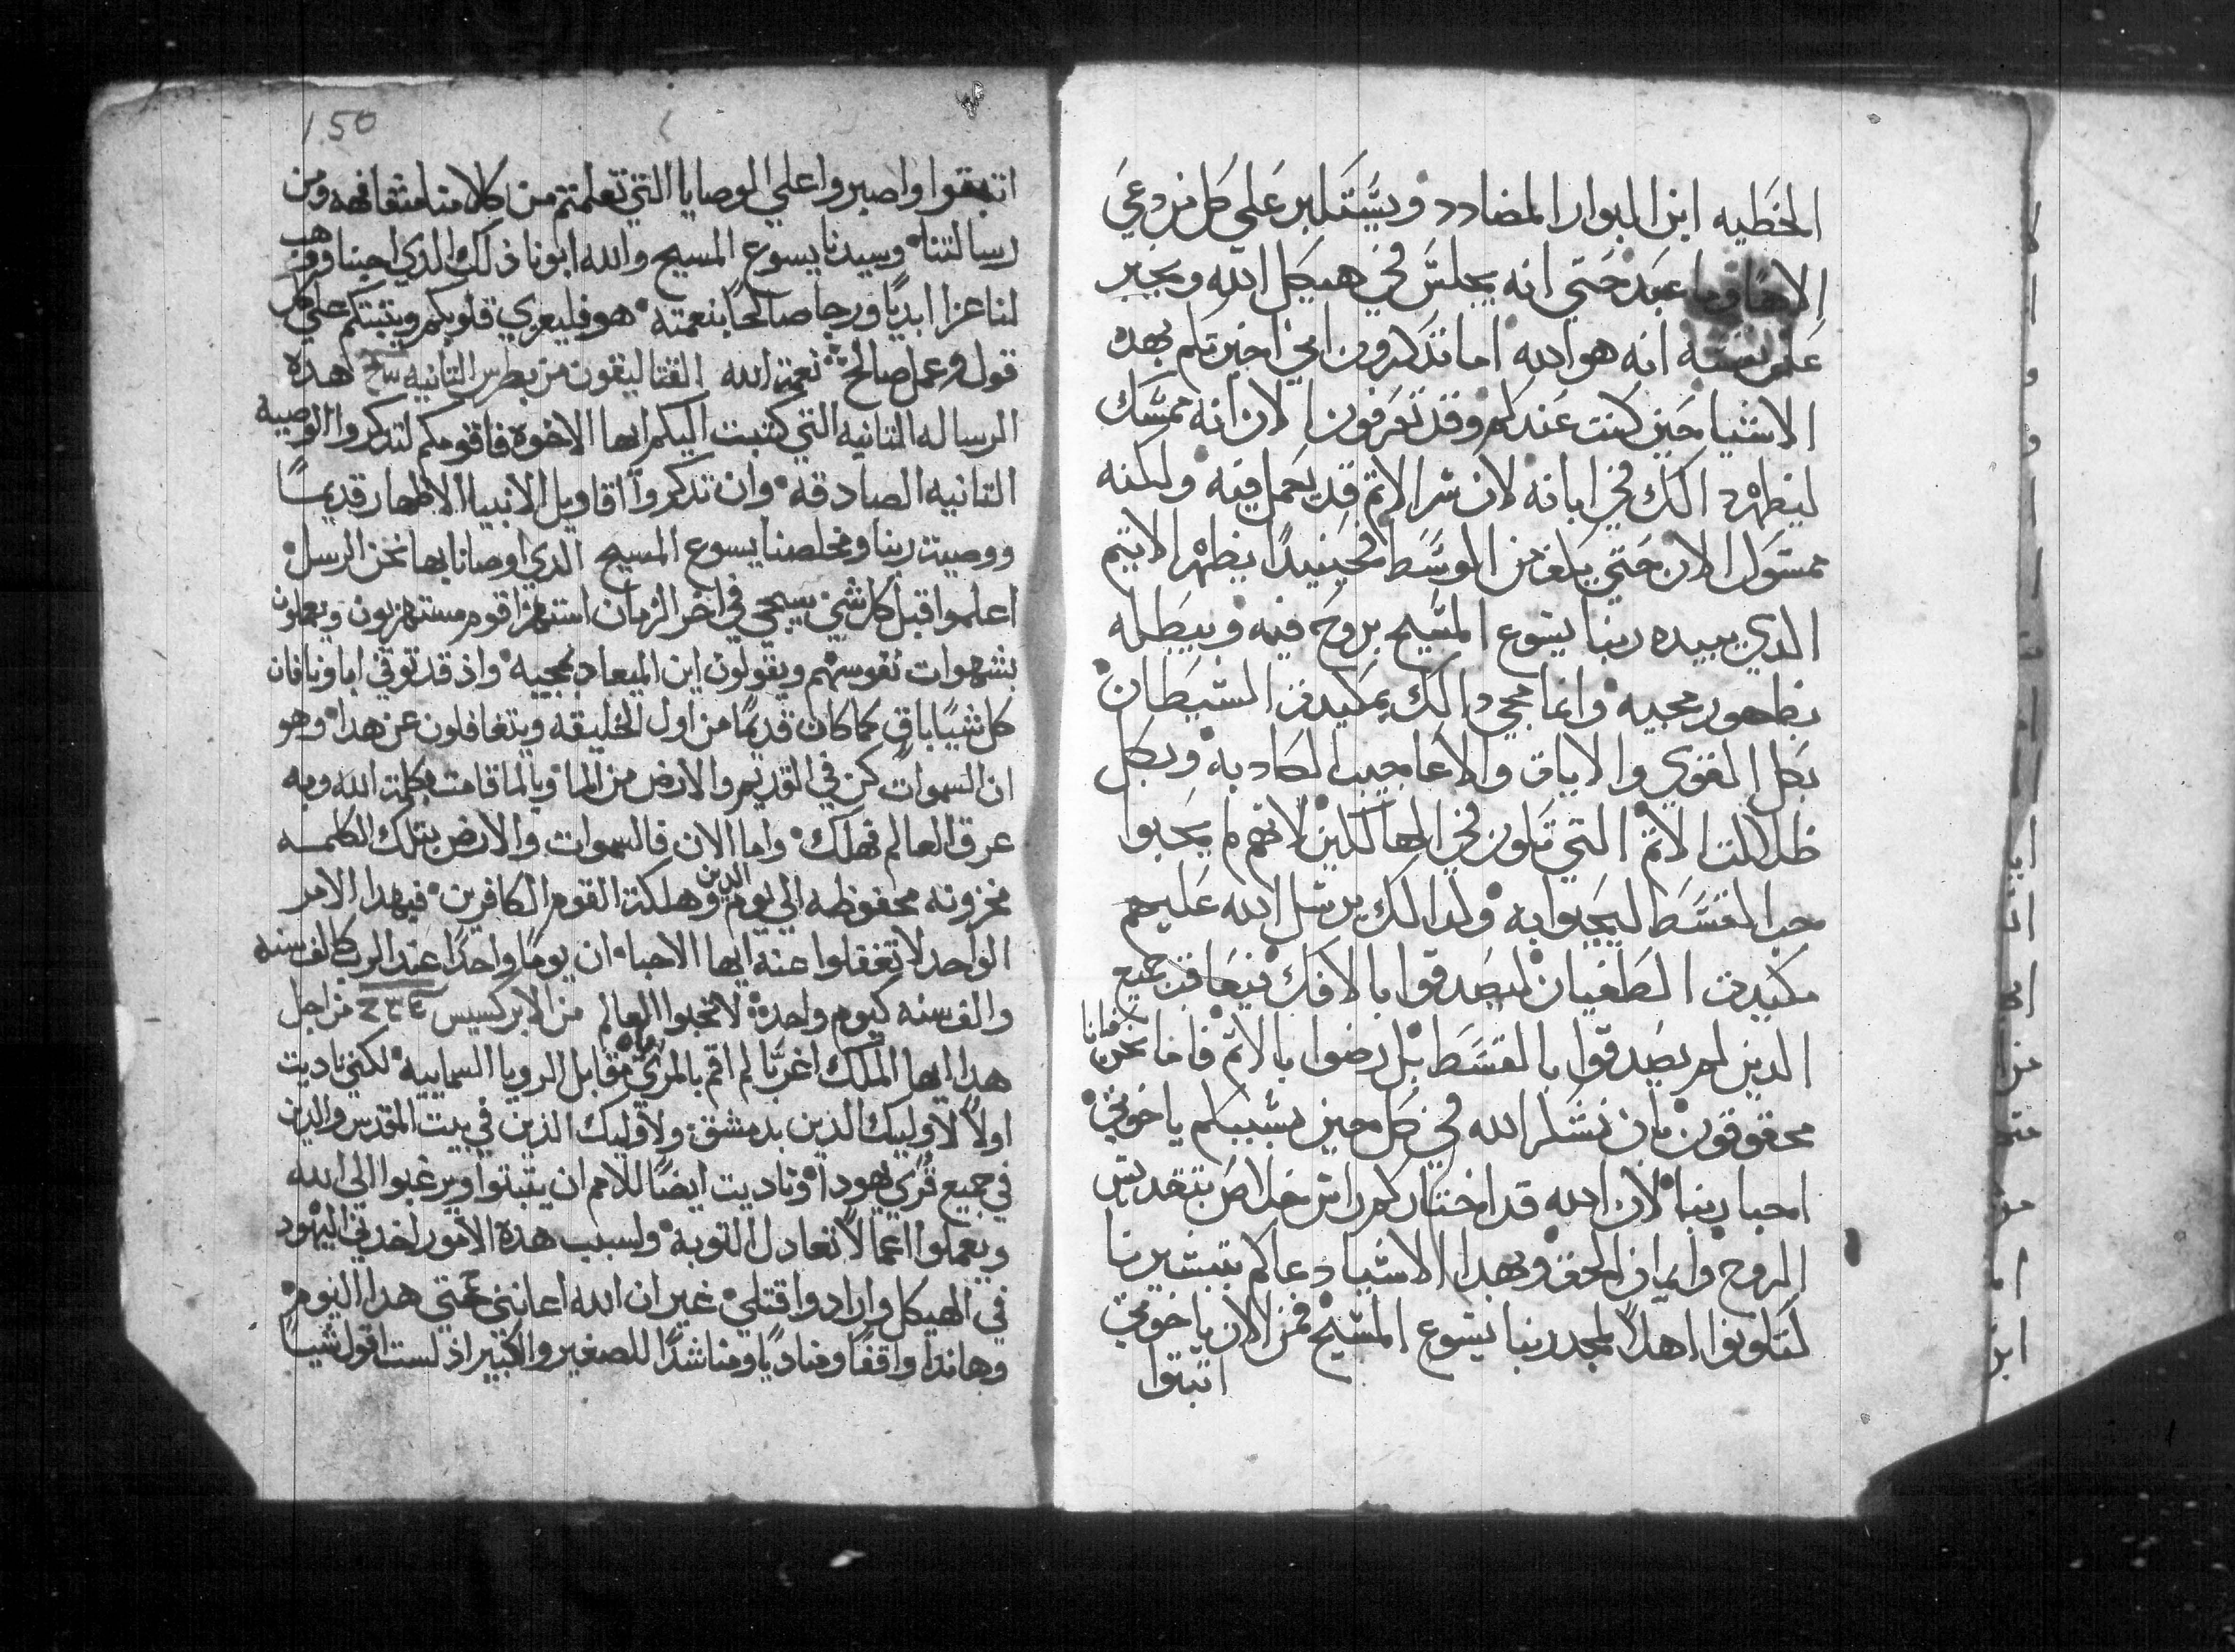 الخطيه ابن البوار المضادد ويستكبر علي كل من دعي
الاها وما عبد حتي انه يجلس في هيكل الله ويخبر
عن نفسه انه هو الله اما تذكرون اني اخبرتكم بهده
الاشيا حين كنت عندكم وقد تعرفون الان انه ممسك
ليظهر دالك في ابانه لان شر الاثم قد يعمل فيه ولكنه
ممسول الان حتي يبلغ من الوسط فحينيدا يظهر الاثيم
الدي يبيده ربنا يسوع المسيح بروح فيه ويبطله
بظهور مجيه وانما مجي دالك بمكيدة الشيطان
بكل القوي والايات والاعاجيب الكادبه وبكل
ظلالت الاثم التي تكون في الهالكين لانهم لم يحبوا
حب القسط ليحيوا به ولدالك يرسل الله عليهم
مكيدت الطغيان ليصدقوا بالافك فيعاقب جميع
الدين لم يصدقوا بالقسط بل رضوا بالاثم فاما نحن فانا
محقوقون بان نشكر الله في كل حين بسببكم ياخوتي
احبا ربنا لان الله قد اختاركم راس خلاص بتقديس
الروح وايمان الحق وبهدا الاشيا دعاكم بتبشيرنا
لتكونوا اهلا لمجد ربنا يسوع المسيح فمن الان ياخوتي
اثبتوا
150
اتبتوا واصبروا علي الوصايا التي تعلمتم من كلامنا مشافهه ومن
رسالتنا وسيدنا يسوع المسيح والله ابونا ذلك الدي احبنا ووهب
لنا عزا ابديا ورجا صالحا بنعمته هو فليعزي قلوبكم ويثبتكم علي كل
قول وعمل صالح نعمة الله القتاليقون من بطرس التانيه هده
الرساله التانيه التي كتبت اليكم ايها الاخوه فاقومكم لتدكروا الوصيه
التانيه الصادقه وان تدكروا اقاويل الانبيا الاطهار قديما
ووصية ربنا ومخلصنا يسوع المسيح الدي اوصانا بها نحن الرسل
اعلموا قبل كل شي سيجي في اخر الزمان استهزا قوم مستهزيون ويعملون
بشهوات نفوسهم ويقولون اين الميعاد بمجيه واذ قد توفي اباونا فان
كل شيا باق كما كان قديما من اول الخليقه ويتغافلون عن هدا وهو
ان السموات كن في القديم والارض من الما وبالما قامت بكلمة الله وبه
عرق العالم فهلك واما الان فالسموات والارض بتلك الكلمه
مخزونه محفوظه الي يوم الدين وهلكة القوم الكافرين فبهدا الامر
الواحد لا تغفلوا عنه ايها الاحبا ان يوما واحدا عند الرب كالف سنه
والف سنه كيوم واحد لا تحبوا العالم من الابركسيس من اجل
هدا ايها الملك اغربا لم اقم بالمري مقابل الرويا السماييه لكني ناديت
اولا لاوليك الدين بدمشق ولاوليك الذين في بيت المقدس والدين
في جميع قري يهودا وناديت ايضا للامم ان يتبتوا ويرغبوا الي الله
ويعملوا اعمالا تعادل التوبه ولسبب هدة الامور اخدني اليهود
في الهيكل وارادوا قتلي غير ان الله اعانني حتي هدا اليوم
وهاندا واقفا ومناديا ومناشدا للصغير والكبير اذ لست اقول شيا